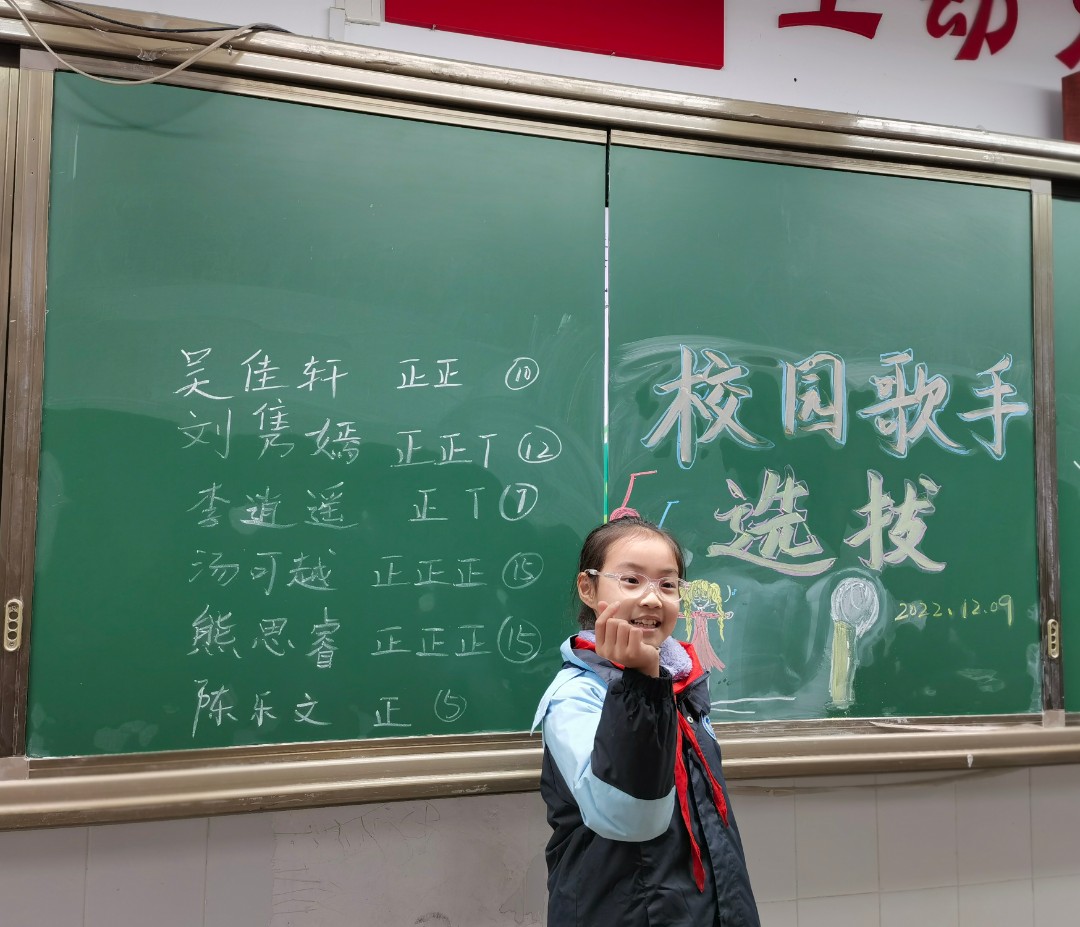 主动
吴佳轩 正正 ⑩
刘隽嫣 正正丅 ⑫
李逍遥 正丅 ⑦
汤可越 正正正 ⑮
熊思睿 正正正 ⑮
陈乐文 正 ⑤
校园歌手
选拔
2022.12.09